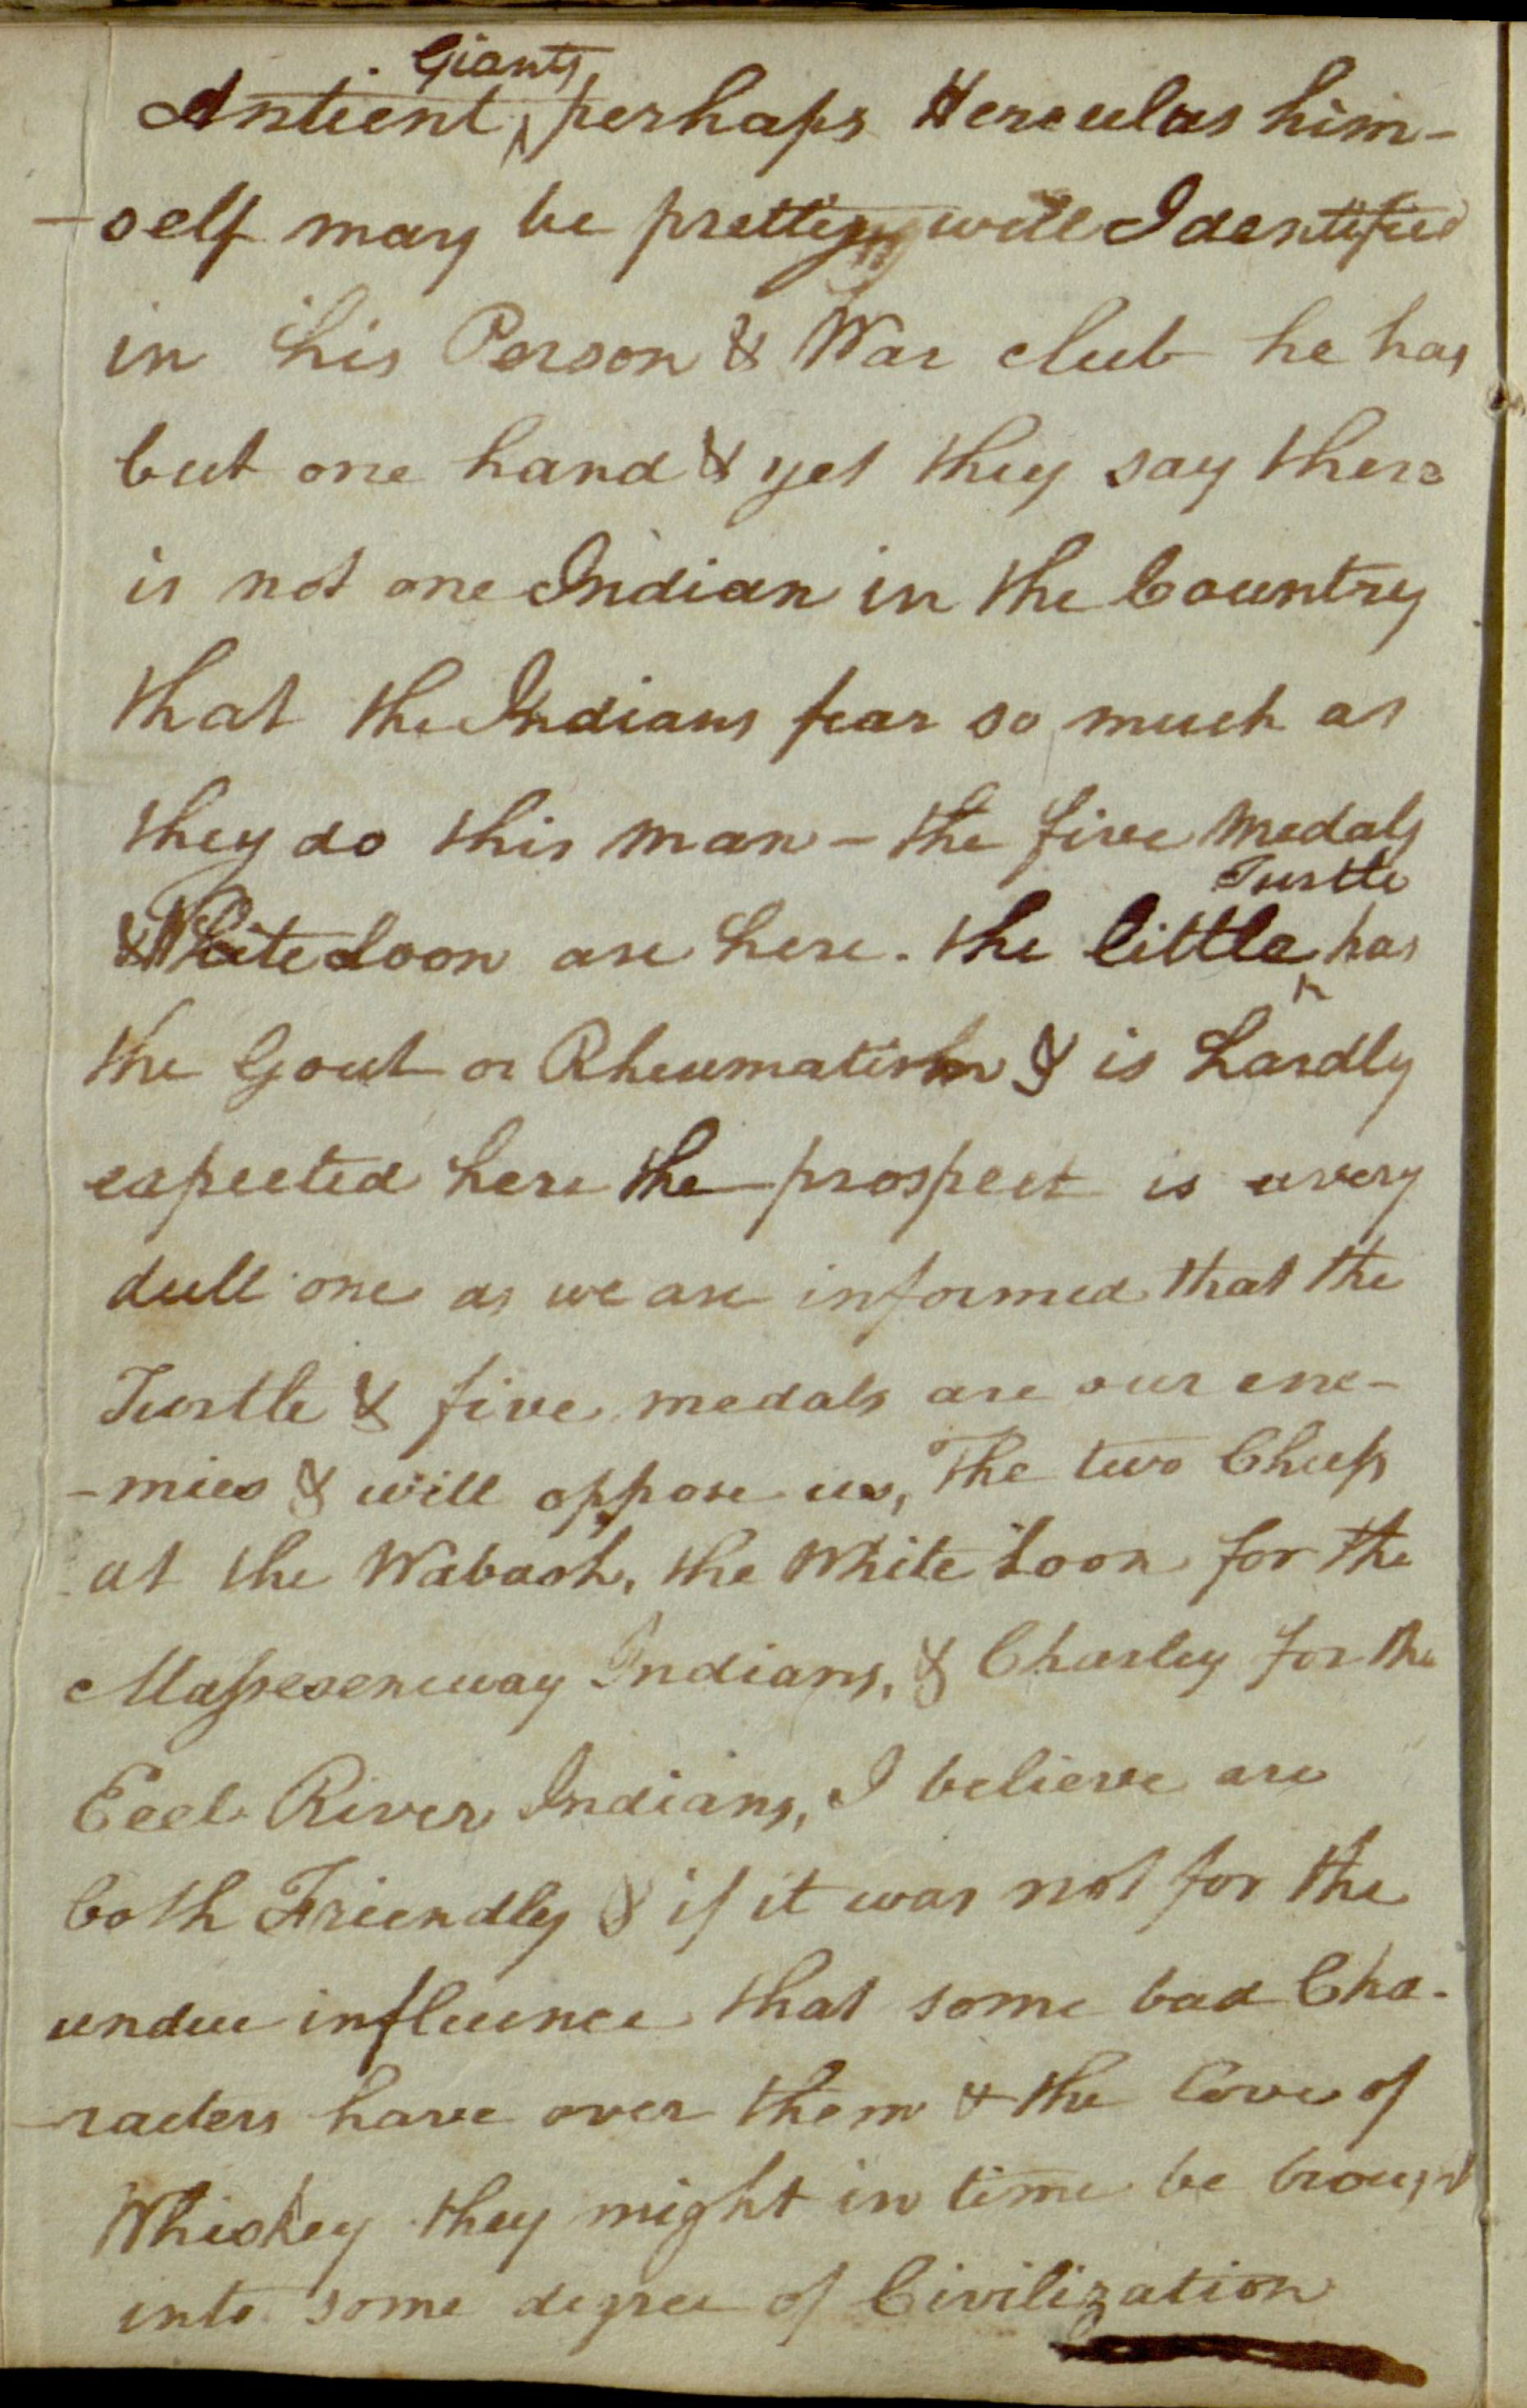 Giants
Antient ^ perhaps Herculas him-
-self may be pretty well Identified
in his Person & War club he has
but one hand & yet they say there
is not one Indian in the Country
that the Indians fear so much as
they do this man - the five medals
Turtle
& White Loon are here. the little ^ has
the Gout or Rheumatism & is hardly
expected here the prospect is a very
dull one as we are informed that the
Turtle & five medals are our ene-
-mies & will oppose us, The two Chiefs
at the Wabash, the White Loon for the
Masseseneway Indians, & Charley for the
Eeel River Indians, I believe are
both Friendly & if it was not for the
undue influence that some bad Cha-
-racters have over them & the Love of
Whiskey they might in time be brought
into some degree of Civilization